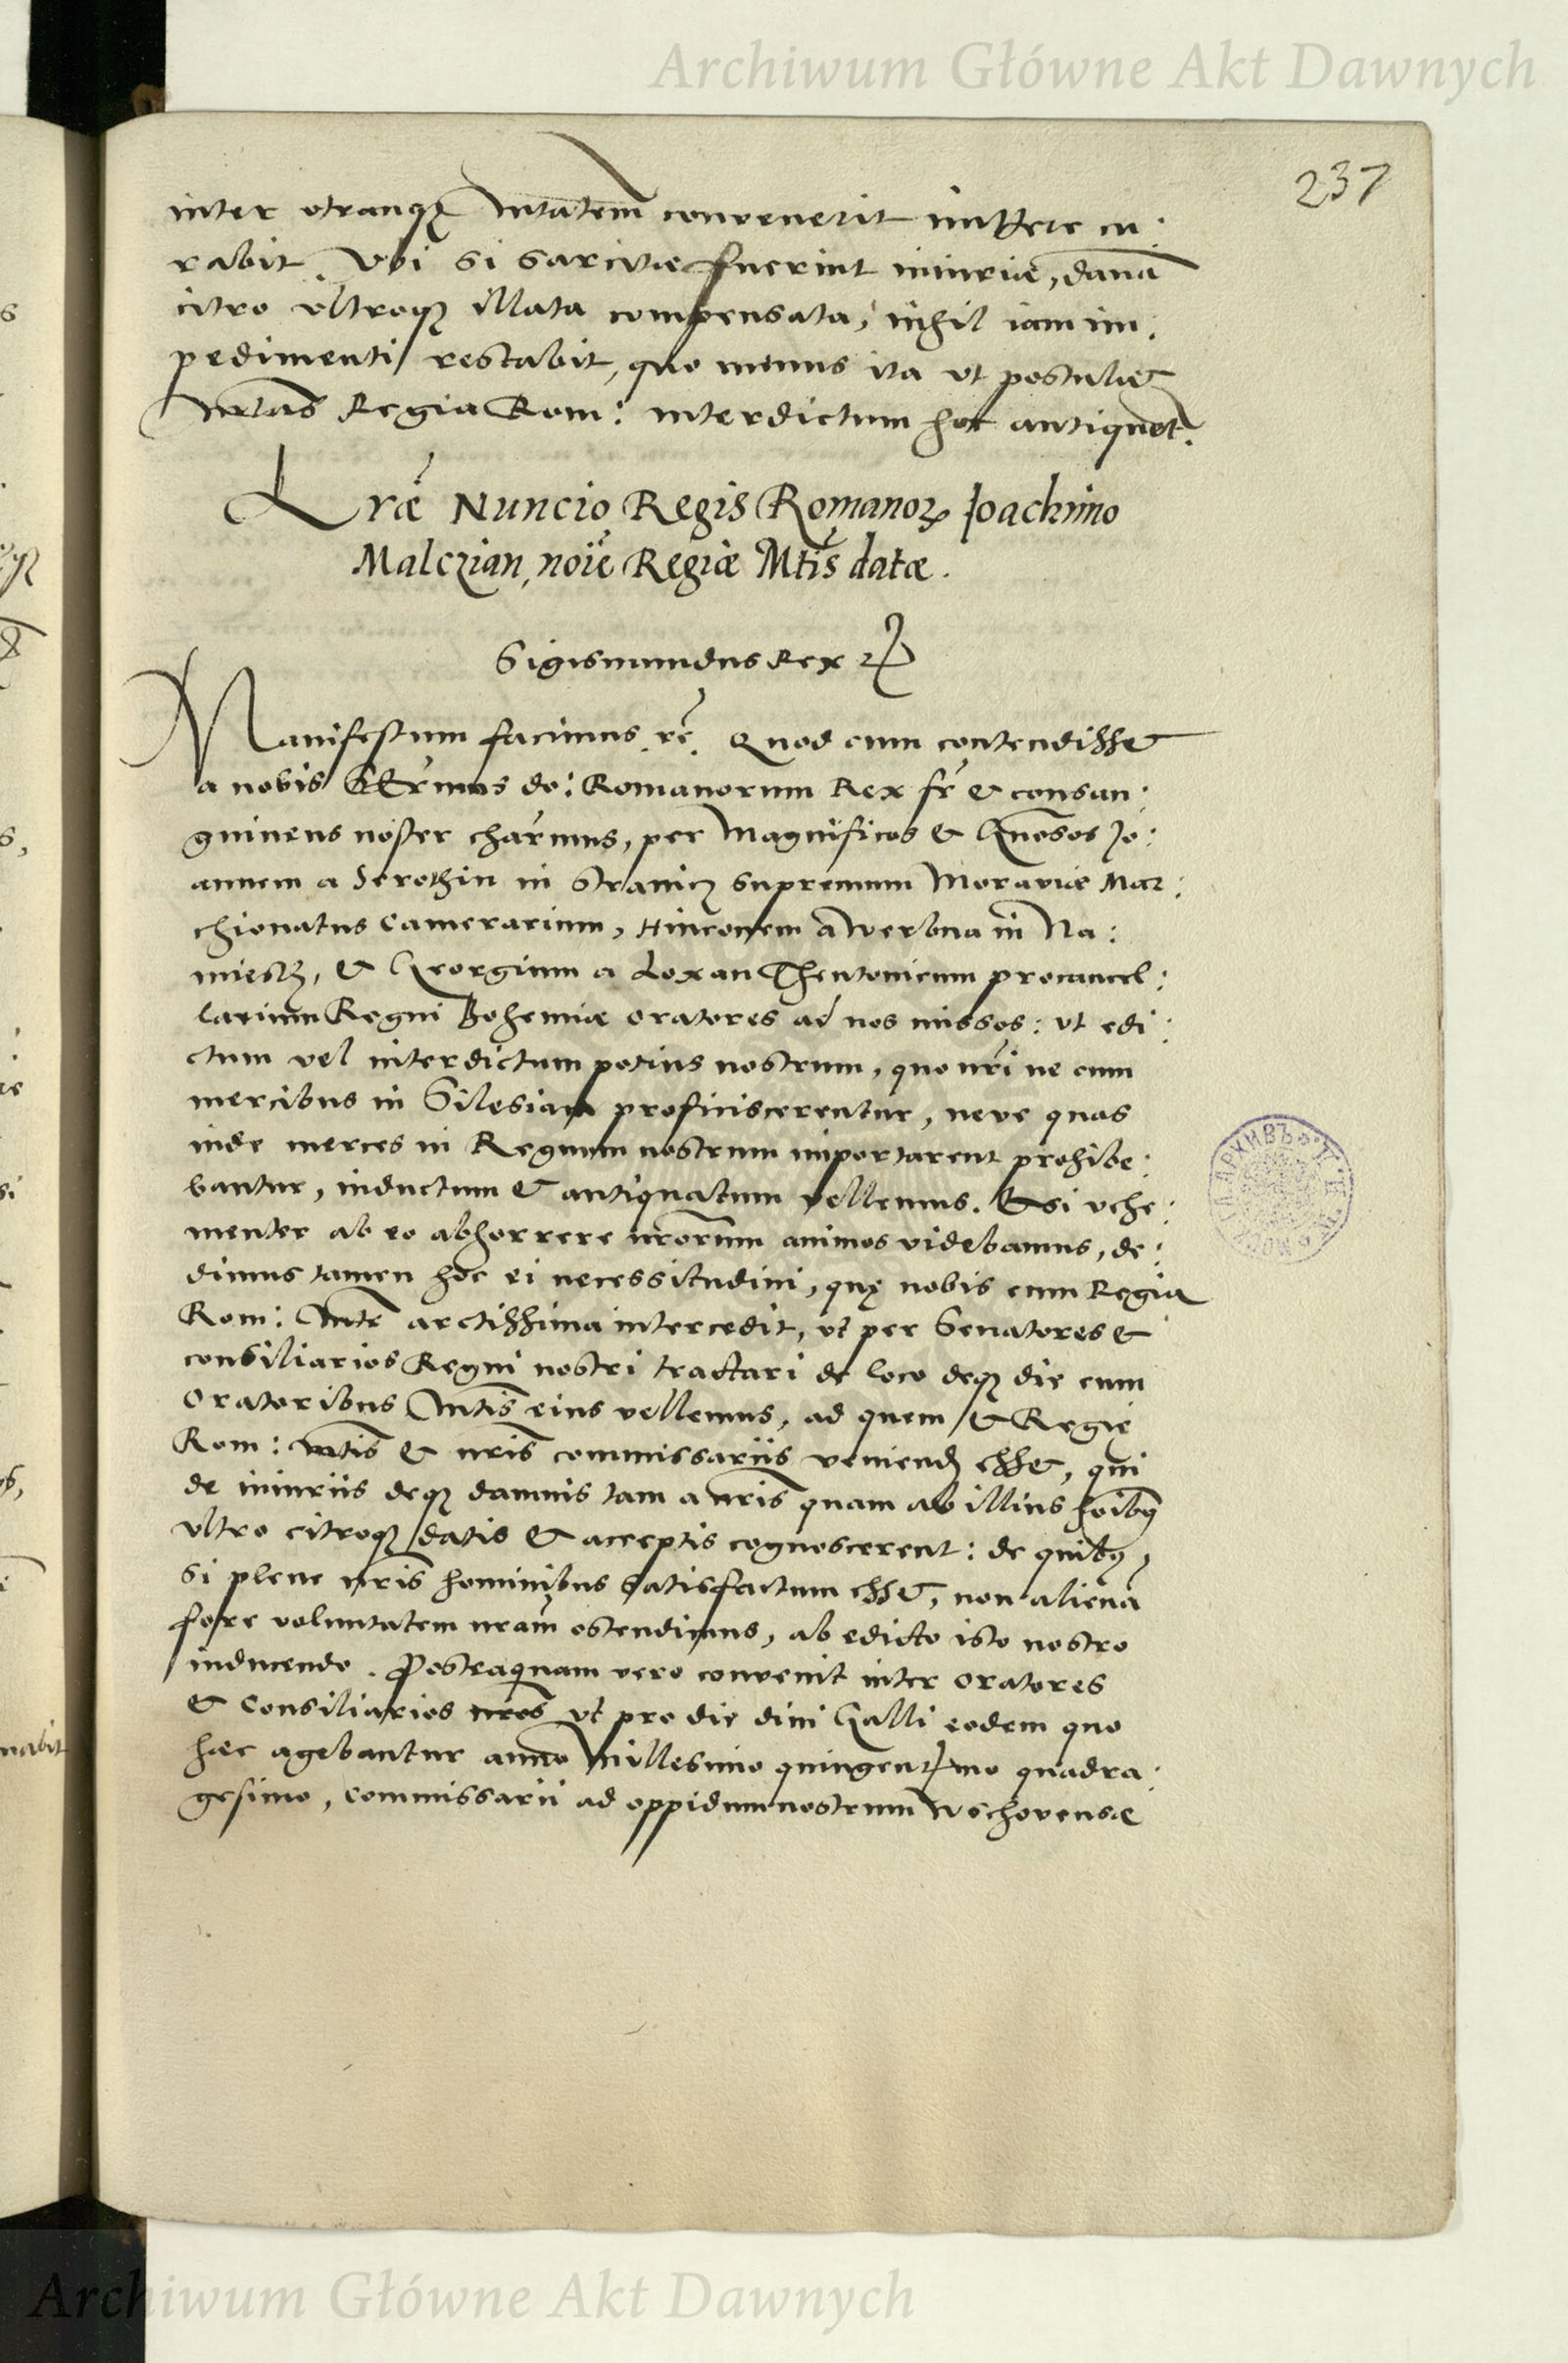 Archiwum Główne Akt Dawnych
237
inter vtranqꝫ Mtatem convenerit mittere cu:
rabit. Vbi si sarcitæ fuerint iniuriæ, damna
citro vltroqꝫ illata compensata, nihil iam im:
pedimenti restabit, quo minus ita vt postulat
Mtas Regia Rom: interdictum hoc antiquet.
Lræ Nuncio Regis Romanoꝝ Joachimo
Malczian, noïe Regiæ Mtis datæ.
Sigismundus Rex
Manifestum facimus rc̄. Quod cum contendisset
a nobis Sermus do: Romanorum Rex fr & consan:
guineus noster charmus, per Magnificos & Gnosos Jo:
annem a Serothin in Stranicz supremum Moraviæ Mar:
chionatus Camerarium, Hinconem a Werbna in Na:
miestz, & Georgium a Loxan Theutonicum procancel:
larium Regni Bohemiæ oratores ad nos missos: vt edi:
ctum vel interdictum potius nostrum, quo nri ne cum
mercibus in Silesiam proficiscerentur, neve quas
inde merces in Regnum nostrum importarent prohibe:
bantur, inductum & antiquatum vellemus. Etsi vehe:
menter ab eo abhorrere nrorum animos videbamus, de:
dimus tamen hoc ei necessitudini, quę nobis cum Regia
Rom: Mte arctissima intercedit, vt per Senatores &
consiliarios Regni nostri tractari de loco deqꝫ die cum
Oratoribus Mtis eius vellemus, ad quem & Regię
Rom: mtis & nris commissariis veniend esset, qui
de iniuriis deqꝫ damnis tam a nris quam ab illius hoibꝫ
vltro citroqꝫ datis & acceptis cognoscerent: de quibꝫ,
si plene nris hominibus satisfactum esset, non aliena
fore voluntatem nram ostendimus, ab edicto isto nostro
inducendo. Posteaquam vero convenit inter oratores
& Consiliarios nros vt pro die divi Galli eodem quo
hæc agebantur anno Millesimo quingentmo quadra:
gesimo, commissarii ad oppidum nostrum Wschovense
nabit
Archiwum Główne Akt Dawnych